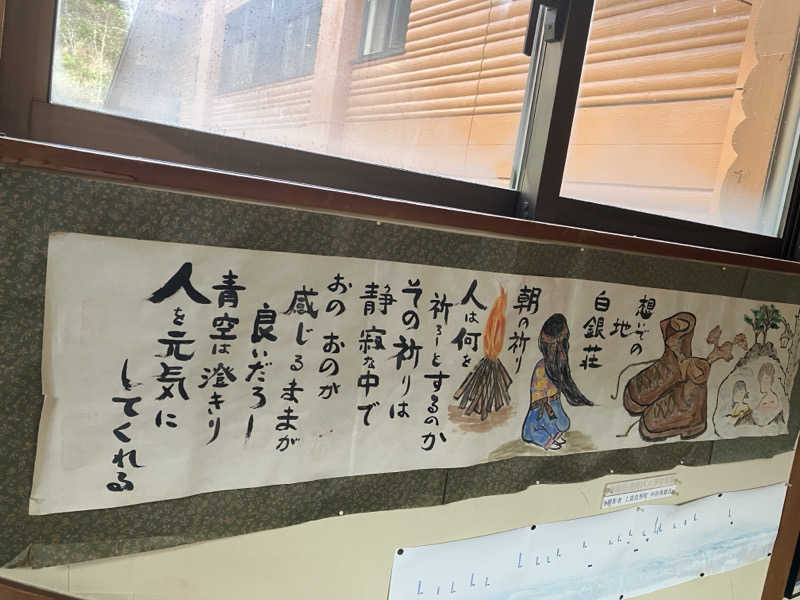 想いその
地
白銀荘
朝の祈り
人は何を
祈ろーとするのか
その祈りは
静寂な中で
おの おのが
感じるままが
良いだろー
青空は澄きり
人を元気に
してくれる